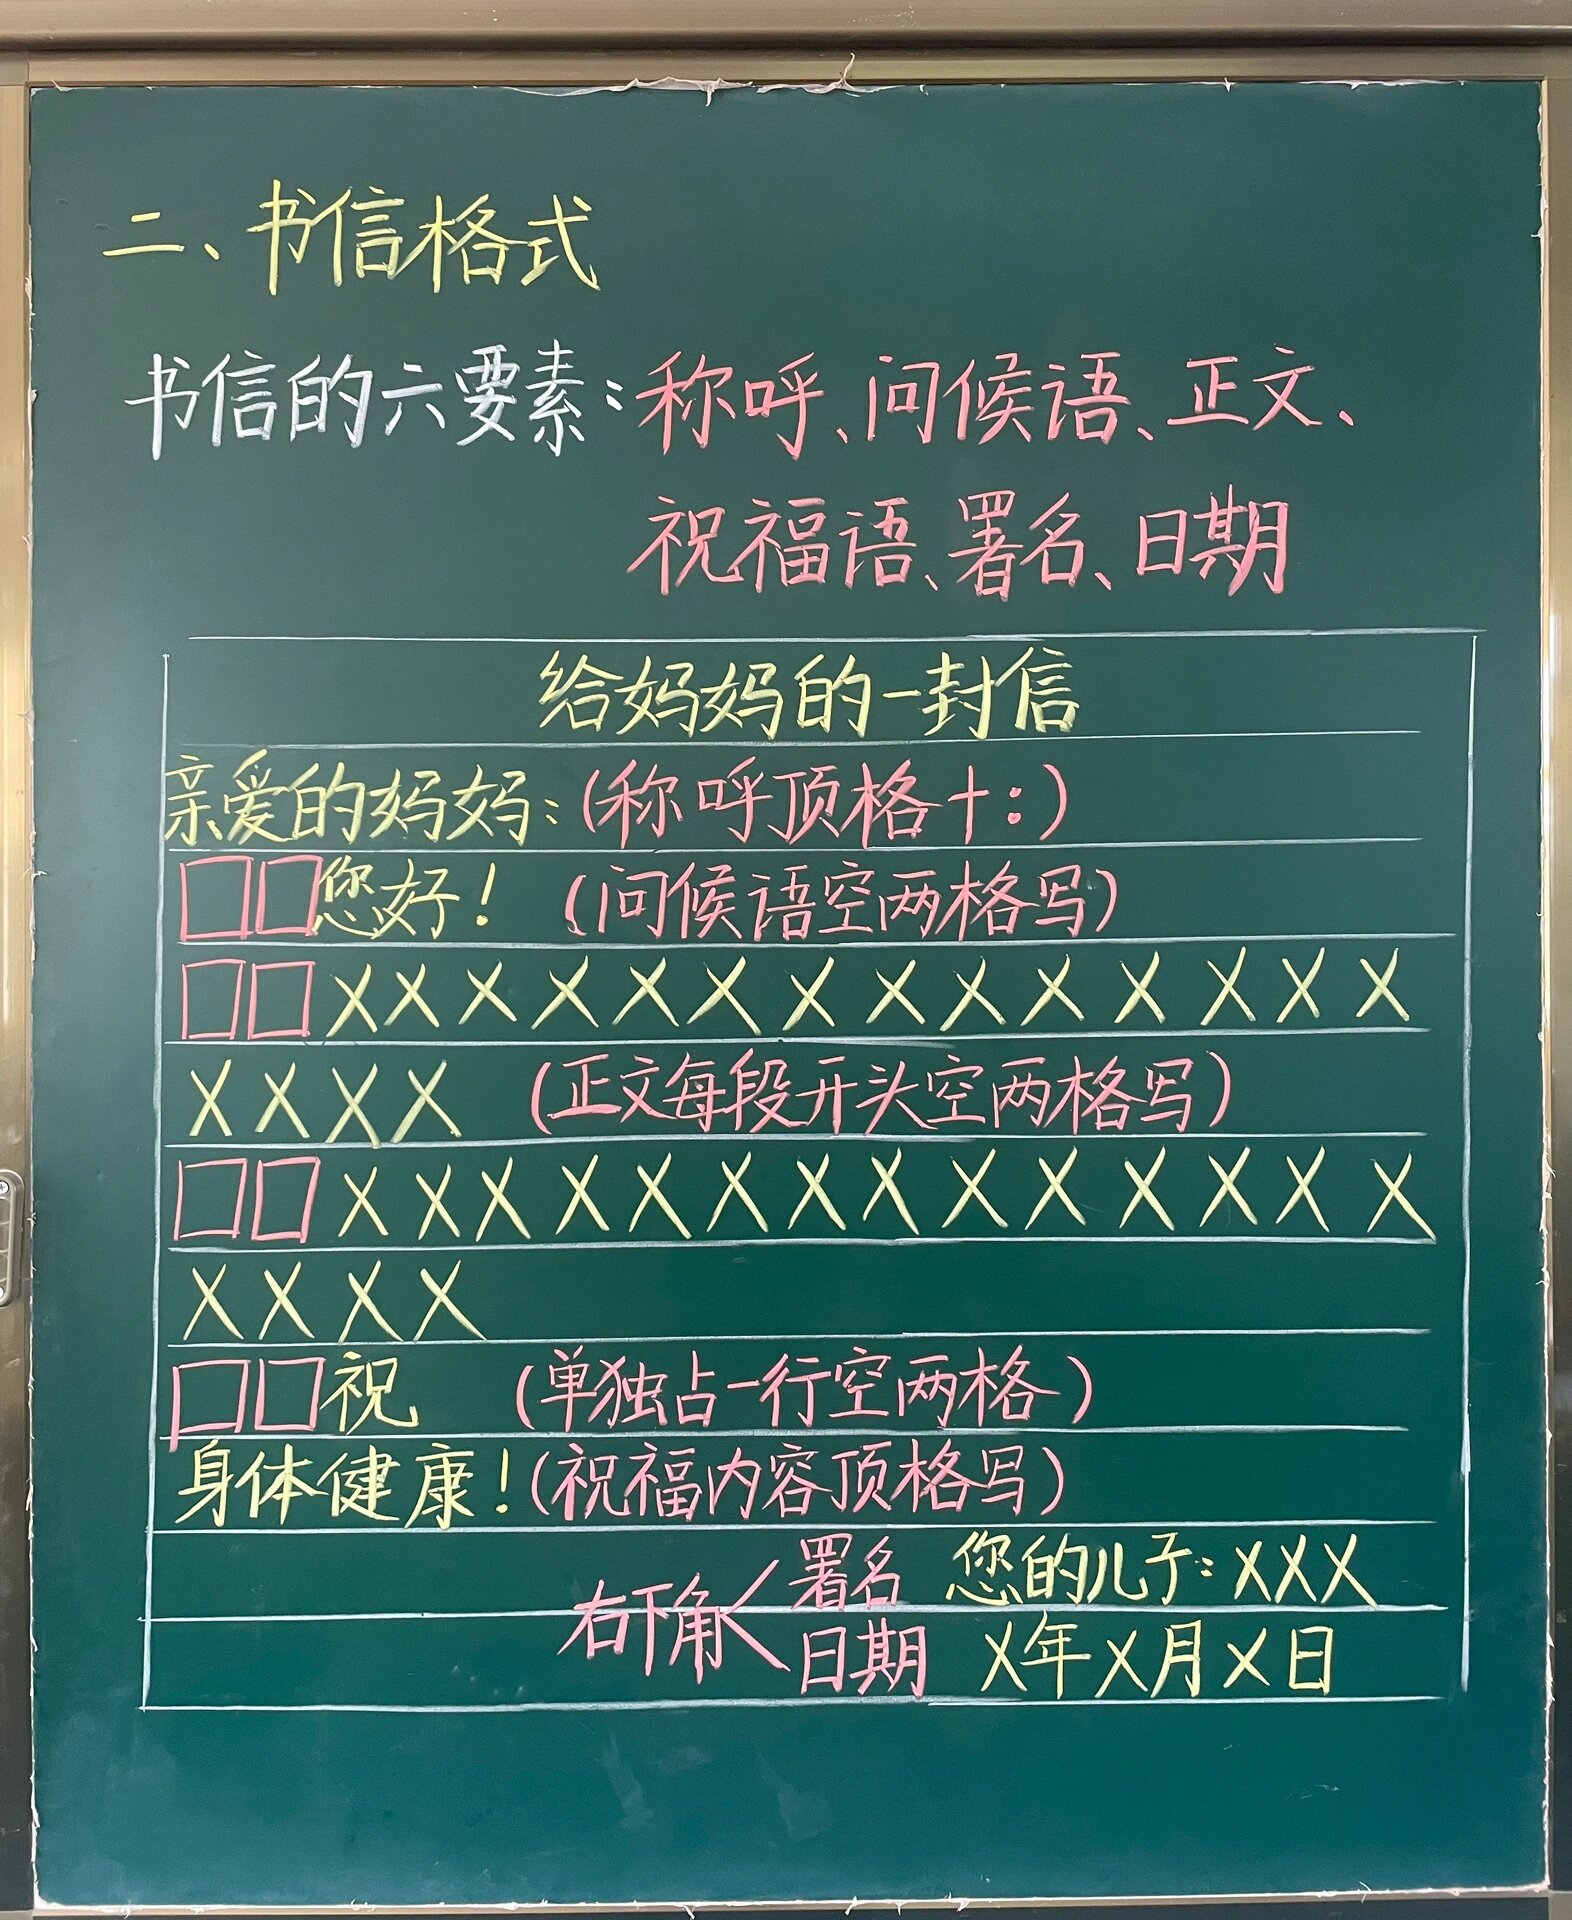 二、书信格式
书信的六要素：称呼、问候语、正文、
祝福语、署名、日期
给妈妈的一封信
亲爱的妈妈：(称呼顶格+：)
□□您好！(问候语空两格写)
□□XXXXXXXXXXXXXX
XXXX (正文每段开头空两格写)
□□XXXXXXXXXXXXXX
XXXX
□□祝 (单独占一行空两格)
身体健康！(祝福内容顶格写)
右下角<署名 您的儿子：XXX
日期 X年X月X日